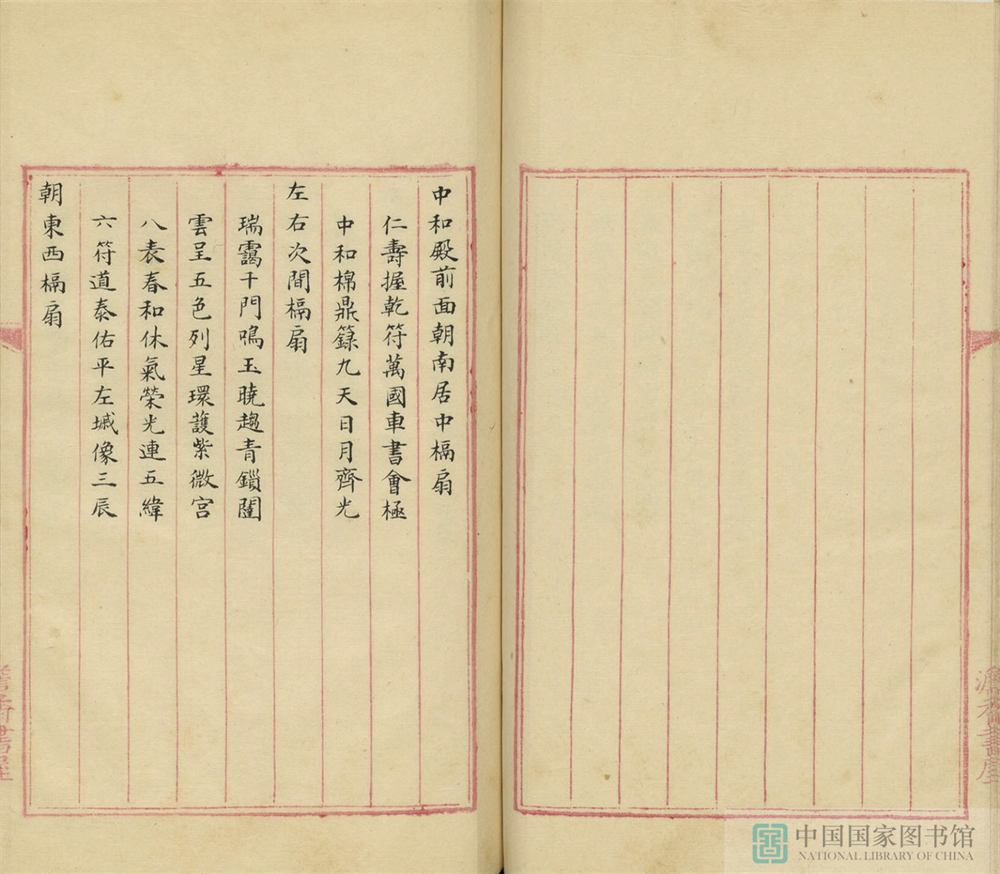 中和殿前面朝南居中槅扇
仁壽握乾符萬國車書會極
中和綿鼎籙九天日月齊光
左右次間槅扇
瑞靄千門鳴玉曉趨青鎖闥
雲呈五色列星環護紫微宮
八表春和休氣榮光連五緯
六符道泰佑平左墄像三辰
朝東西槅扇
中国国家图书馆
NATIONAL LIBRARY OF CHINA